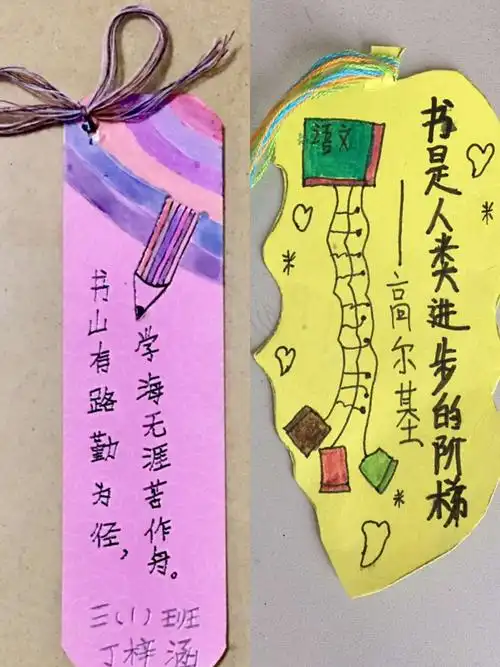 书山有路勤为径，
学海无涯苦作舟。
三（1）班
丁梓涵
语文
书是人类进步的阶梯
——高尔基